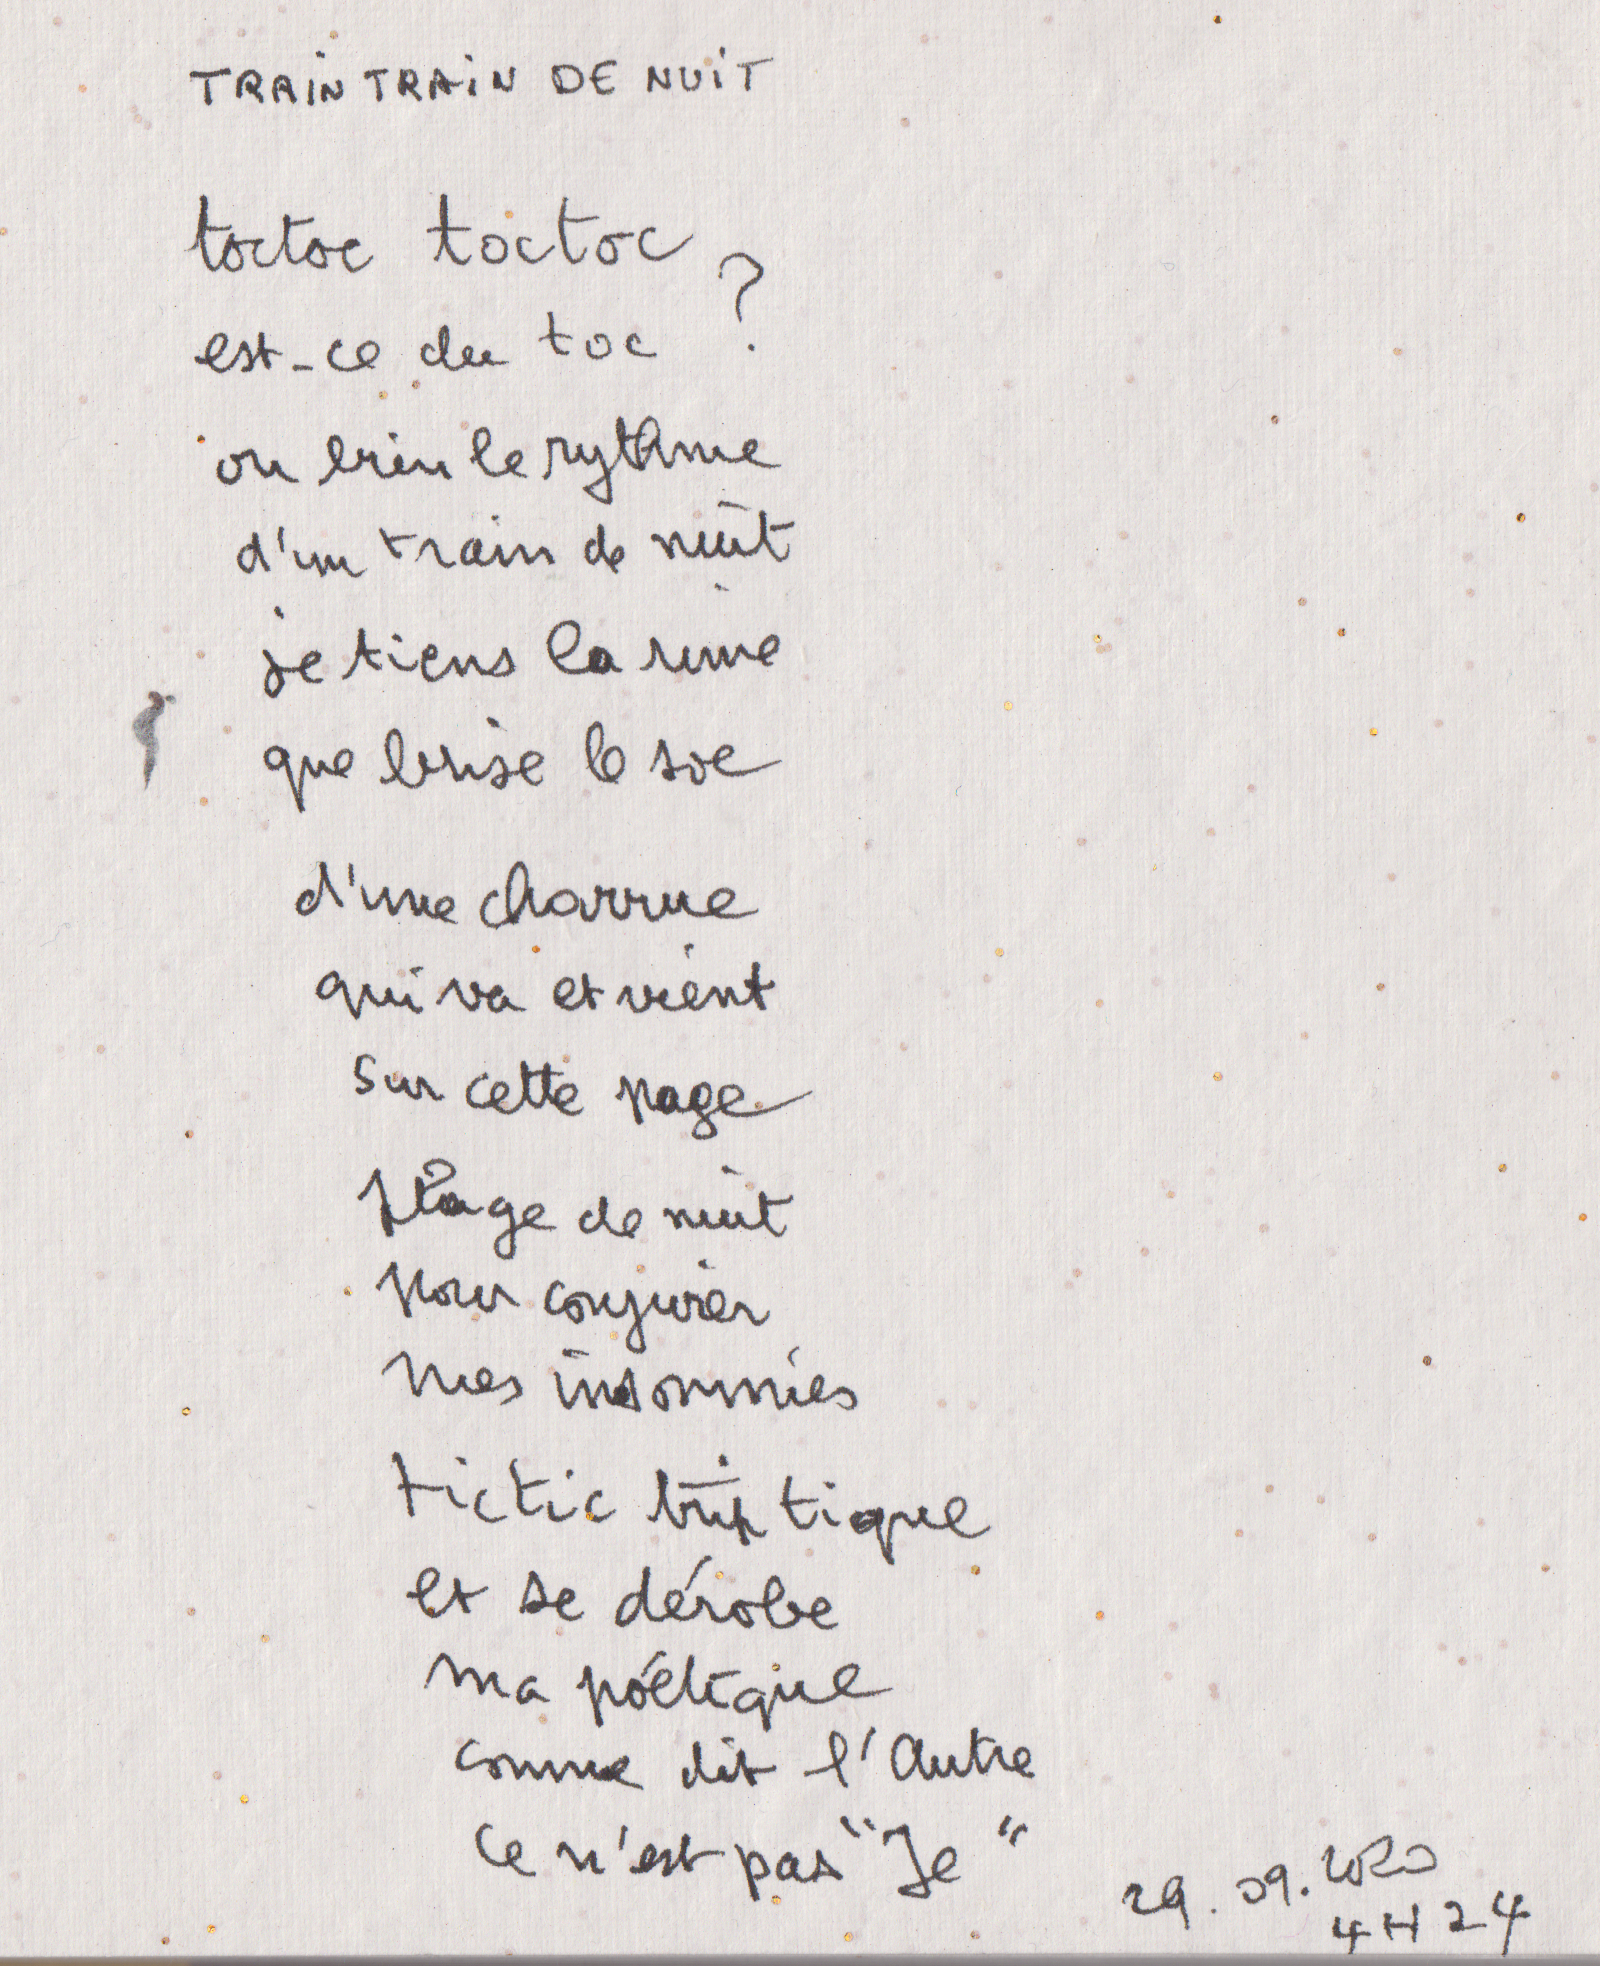 TRAIN TRAIN DE NUIT
toctoc toctoc
est-ce du toc ?
ou bien le rythme
d'un train de nuit
je tiens la rime
que brise le soc
d'une charrue
qui va et vient
sur cette page
plage de nuit
pour conjurer
mes insomnies
tictic triptique
et se dérobe
ma póétique
comme dit l'Autre
ce n'est pas "Je"
29.09.2020
4H24